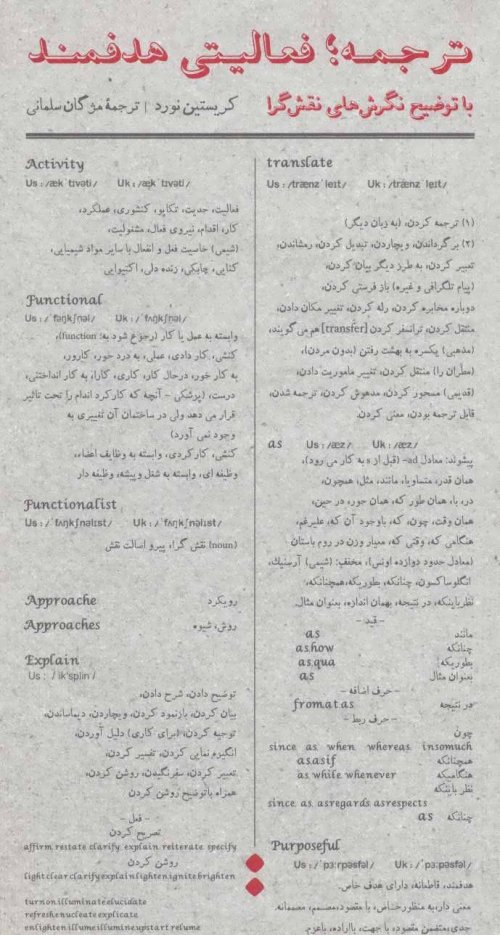 ترجمه؛ فعالیتی هدفمند
با توضیح نگرش‌های نقش‌گرا
کریستین نورد | ترجمهٔ مژگان سلمانی
translate
Us : /trænzˈleɪt/ Uk : /trænzˈleɪt/
(۱) ترجمه کردن، (به زبان دیگر)
(۲) برگرداندن، ویچاردن، تبدیل کردن، رمشاندن،
تعبیر کردن، به طرز دیگر بیان کردن،
(پیام تلگرافی و غیره) باز فرستی کردن،
دوباره مخابره کردن، رله کردن، تغییر مکان دادن،
منتقل کردن، ترانسفر کردن [transfer] هم می گویند،
(مذهبی) یکسره به بهشت رفتن (بدون مردن)،
(مطران را) منتقل کردن، تغییر ماموریت دادن،
(قدیمی) مسحور کردن، مدهوش کردن، ترجمه شدن،
قابل ترجمه بودن، معنی کردن.
as Us : /æz/ Uk : /æz/
پیشوند: معادل ad- (قبل از s به کار می رود)،
همان قدر، متساویا، مانند، مثل، همچون،
در، با، همان طور که، همان جور، در حین،
همان وقت، چون، که، باوجود آن که، علیرغم،
هنگامی که، وقتی که، معیار وزن در روم باستان
(معادل حدود دوازده اونس)، مخفف: (شیمی) آرسنیک،
انگلوساکسون، چنانکه، بطوریکه،همچنانکه،
نظر باینکه، در نتیجه، بهمان اندازه، بعنوان مثال.
– قید –
as مانند
as.how چنانکه
as.qua بطوریکه
as بعنوان مثال
– حرف اضافه –
from.at.as در نتیجه
– حرف ربط –
چون
since as when whereas insomuch
as.as.if همچنانکه
as while whenever هنگامیکه
نظر باینکه
since as. asregards asrespects
as چنانکه
Purposeful
Us : /ˈpɜːrpəsfəl/ Uk : /ˈpɜːpəsfəl/
هدفمند، قاطعانه، دارای هدف خاص.
معنی دار،به منظور خاص، با مقصود،مصمم، مصممانه.
جدی،متضمن مقصود، با جهت، باراده، باعزم.
Activity
Us : /ækˈtɪvəti/ Uk : /ækˈtɪvəti/
فعالیت، جدیت، تکاپو، کنشوری، عملکرد،
کار، اقدام، نیروی فعال، مشغولیت،
(شیمی) خاصیت فعل و انفعال با سایر مواد شیمیایی،
کنایی، چابکی، زنده دلی، اکتیوایی
Functional
Us : /ˈfʌŋkʃnəl/ Uk : /ˈfʌŋkʃnəl/
وابسته به عمل یا کار (رجوع شود به: function)،
کنشی، کار دادی، عملی، به درد خور، کارور،
به کار خور، درحال کار، کاری، کارا، به کار انداختنی،
درست، (پزشکی – آنچه که کارکرد اندام را تحت تاثیر
قرار می دهد ولی در ساختمان آن تغییری به
وجود نمی آورد)
کنشی، کارکردی، وابسته به وظایف اعضاء،
وظیفه ای، وابسته به شغل وپیشه، وظیفه دار
Functionalist
Us : /ˈfʌŋkʃnəlɪst/ Uk : /ˈfʌŋkʃnəlɪst/
(noun) نقش گرا، پیرو اصالت نقش
Approache رویکرد
Approaches روش، شیوه
Explain
Us : / ik'splin /
توضیح دادن، شرح دادن،
بیان کردن، بازنمود کردن، ویچاردن، دیماساندن،
توجیه کردن، (برای کاری) دلیل آوردن،
انگیزم نمایی کردن، تفسیر کردن،
تعبیر کردن، سفرنگیدن، روشن کردن،
همراه باتوضیح روشن کردن
– فعل –
تصریح کردن
affirm restate clarify explain reiterate specify
روشن کردن
light clear clarify explain lighten ignite brighten
turn on illuminate elucidate
refresh enucleate explicate
enlighten illume illumine upstart relume